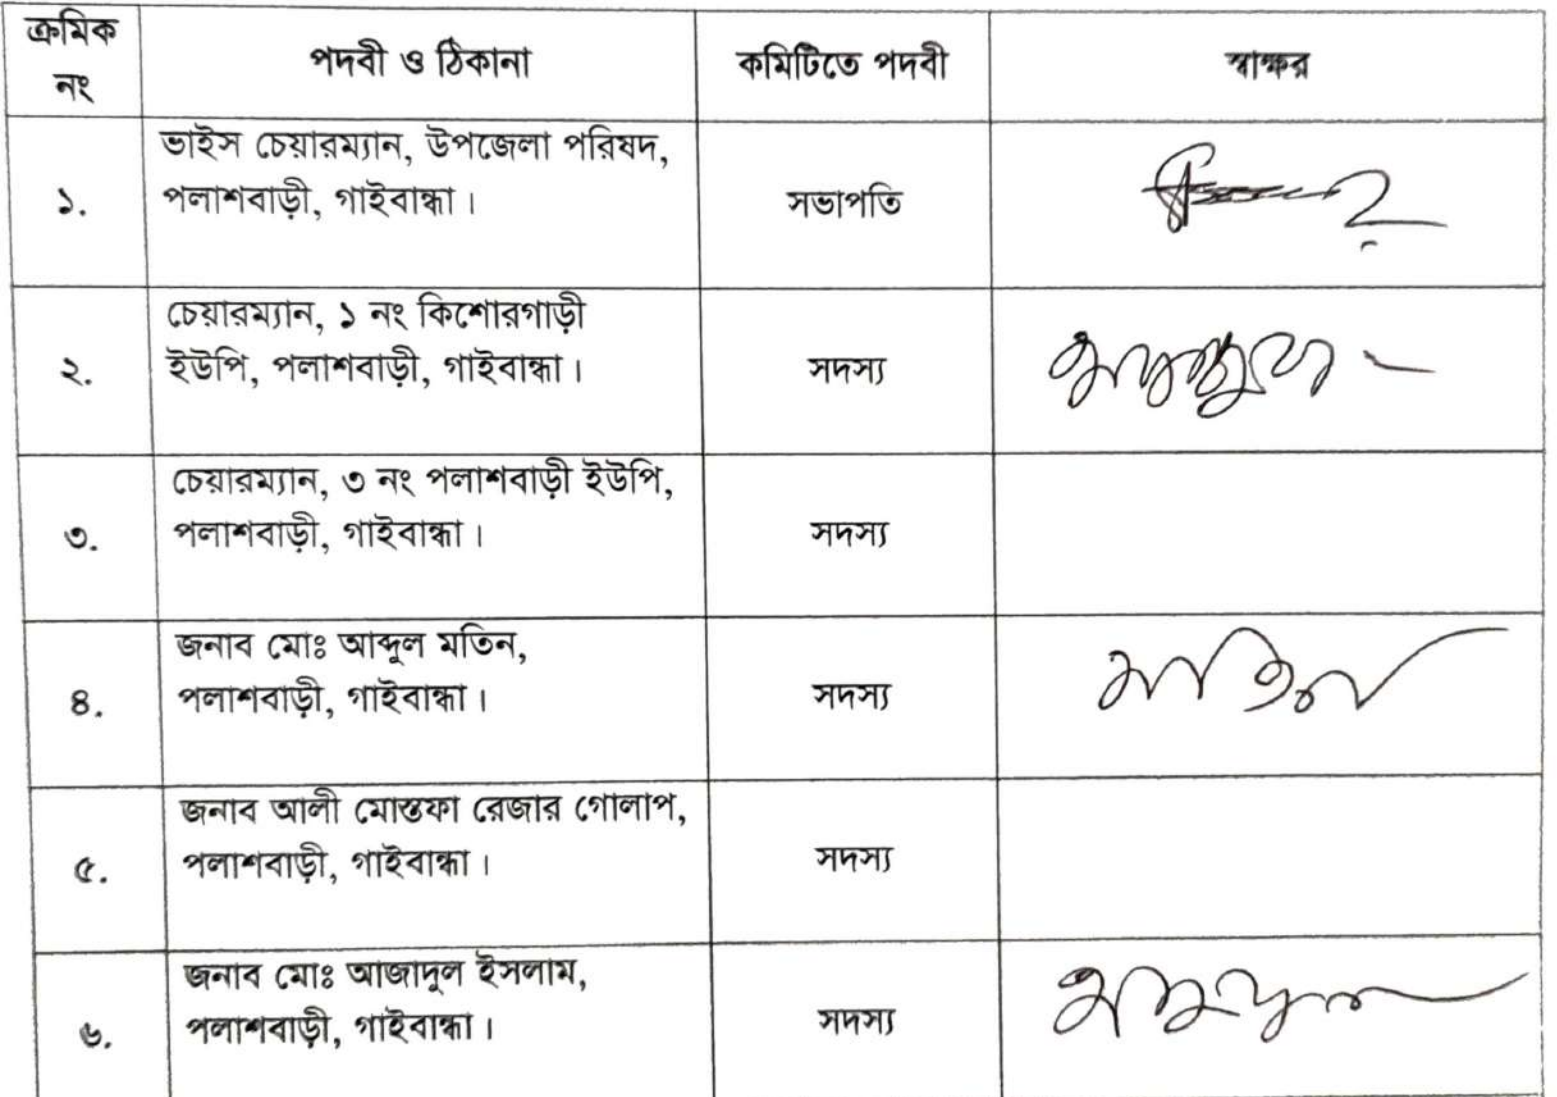 ক্রমিক
নং
পদবী ও ঠিকানা
কমিটিতে পদবী
স্বাক্ষর
১.
ভাইস চেয়ারম্যান, উপজেলা পরিষদ,
পলাশবাড়ী, গাইবান্ধা।
সভাপতি
২.
চেয়ারম্যান, ১ নং কিশোরগাড়ী
ইউপি, পলাশবাড়ী, গাইবান্ধা।
সদস্য
৩.
চেয়ারম্যান, ৩ নং পলাশবাড়ী ইউপি,
পলাশবাড়ী, গাইবান্ধা।
সদস্য
৪.
জনাব মোঃ আব্দুল মতিন,
পলাশবাড়ী, গাইবান্ধা।
সদস্য
মতিন
৫.
জনাব আলী মোস্তফা রেজার গোলাপ,
পলাশবাড়ী, গাইবান্ধা।
সদস্য
৬.
জনাব মোঃ আজাদুল ইসলাম,
পলাশবাড়ী, গাইবান্ধা।
সদস্য